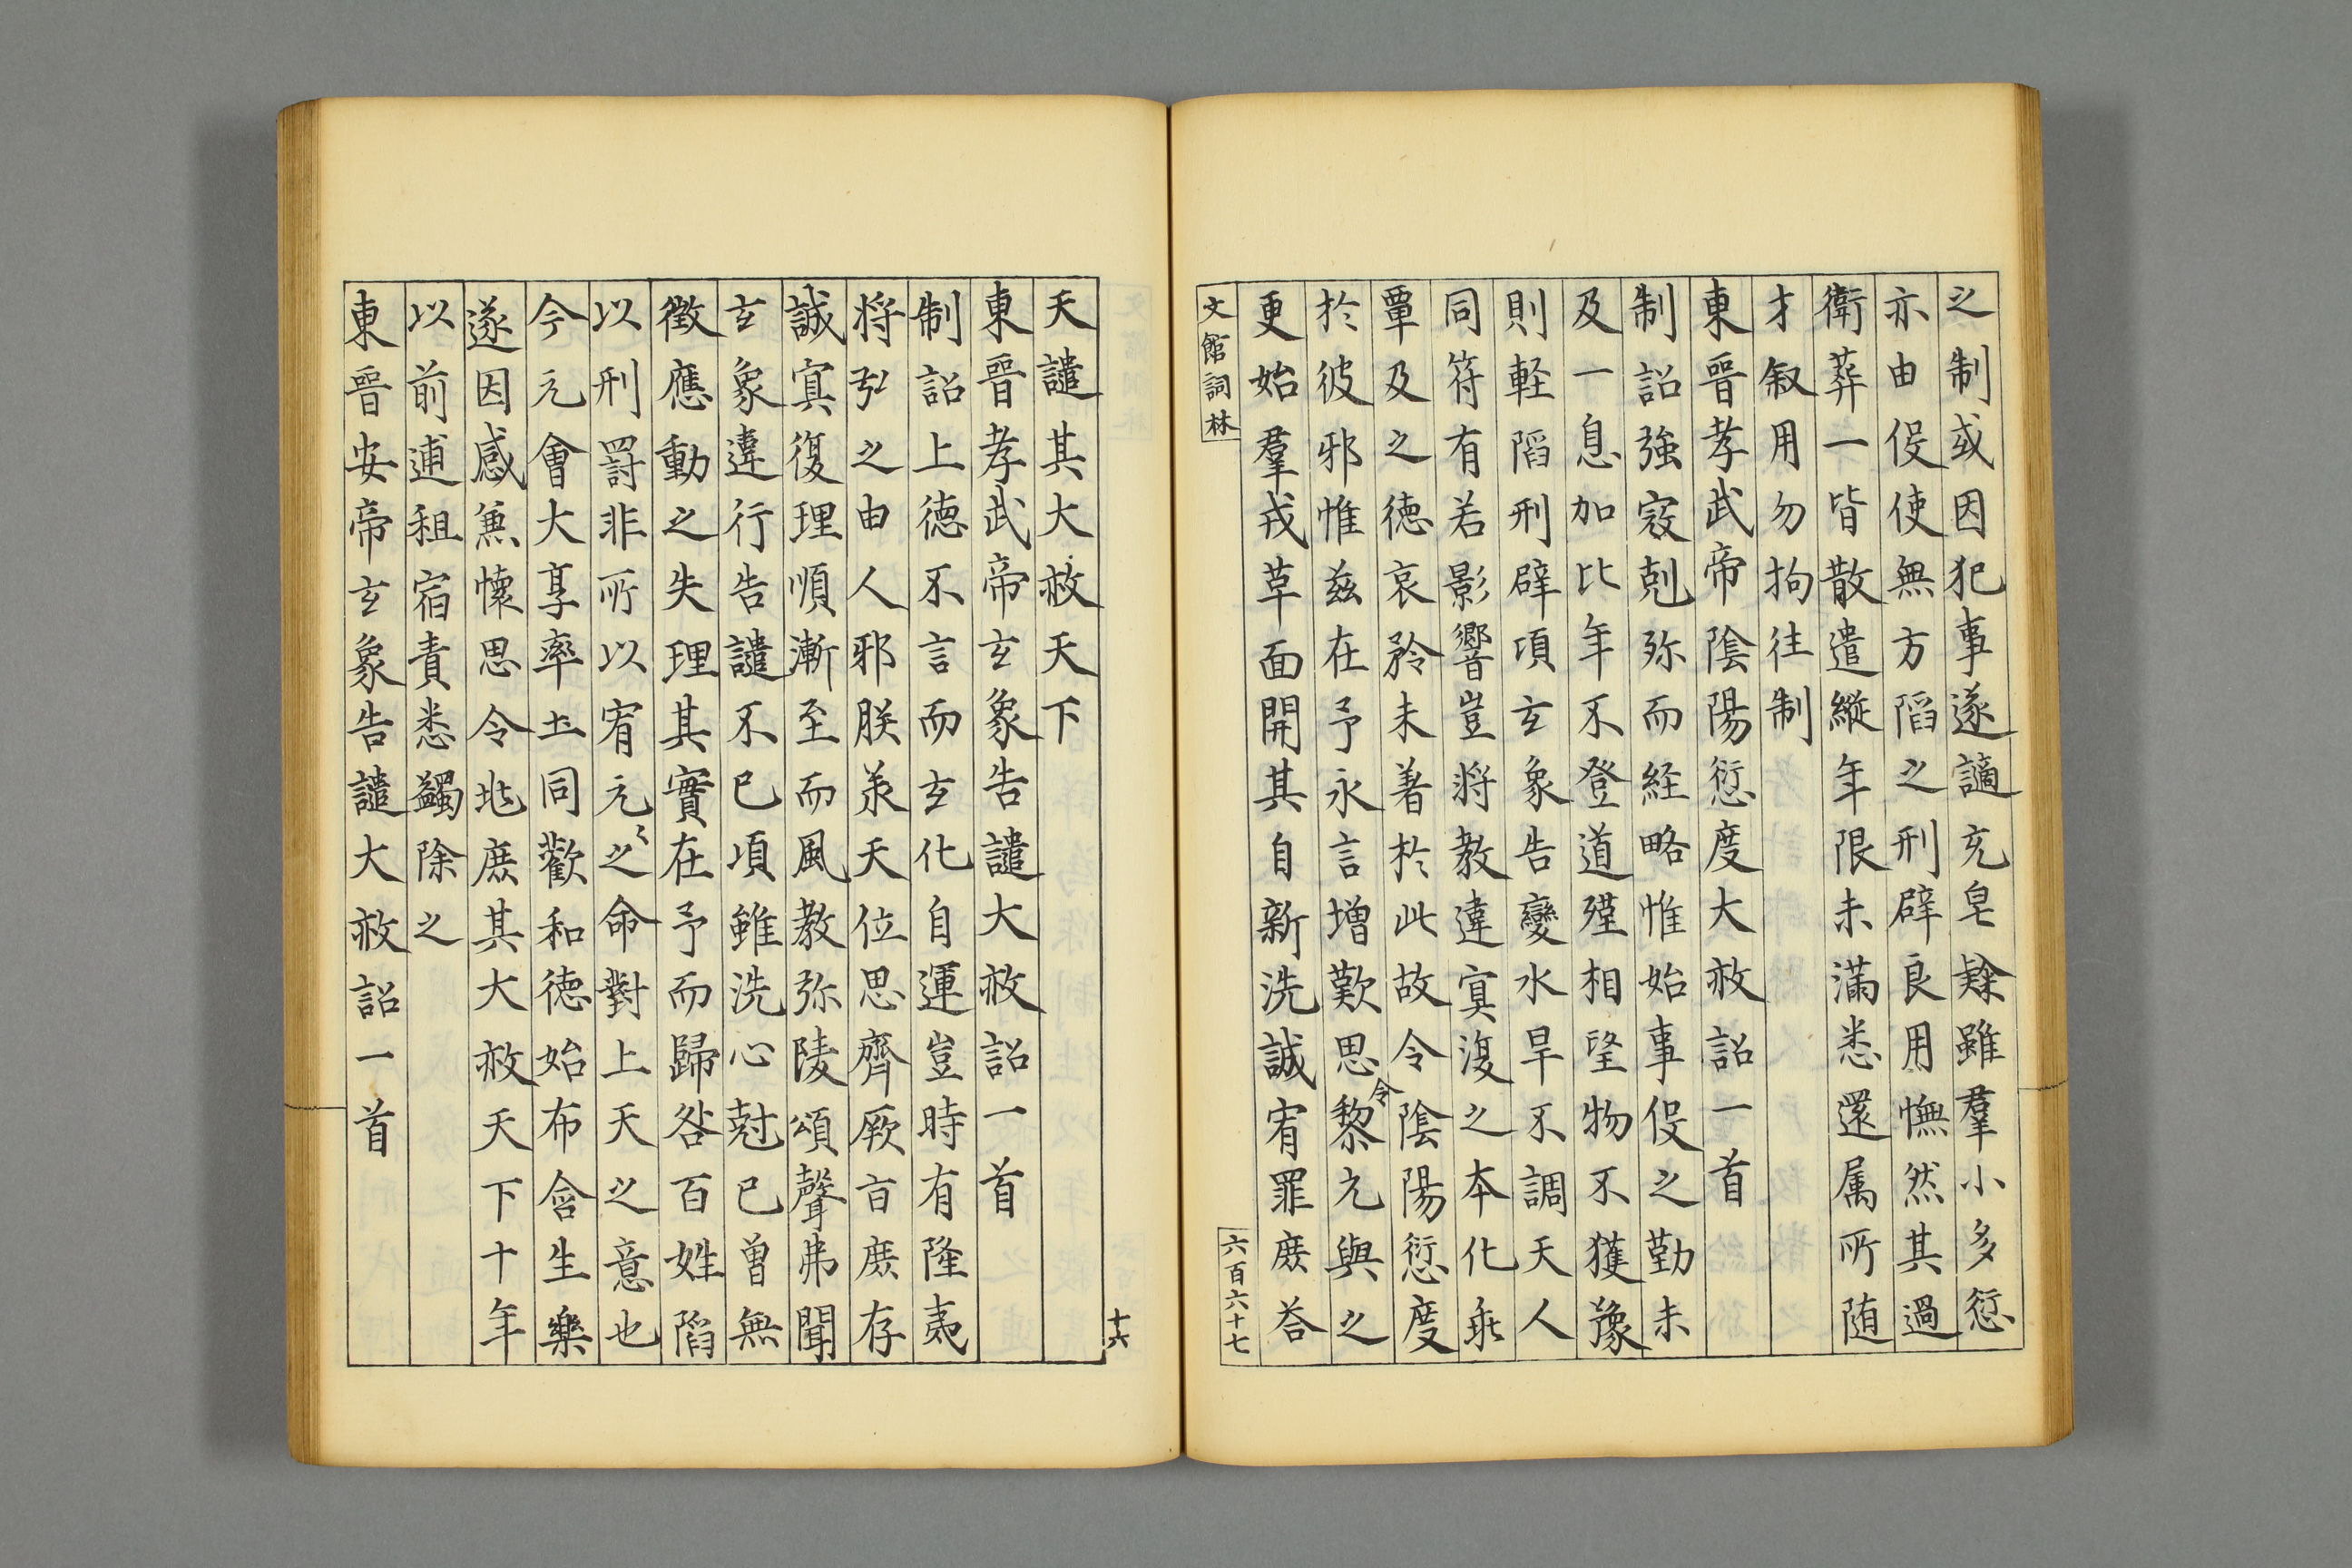 之制或因犯事遂謫充皂隸雖羣小多愆
亦由役使無方陷之刑辟良用憮然其過
衛葬一皆散遣縱年限未滿悉還属所随
才叙用勿拘往制
東晉孝武帝陰陽愆度大赦詔一首
制詔強寇剋殄而経略惟始事役之勤未
及一息加比年不登道殣相望物不獲豫
則軽陷刑辟項玄象告變水旱不調天人
同符有若影響豈将教違冥復之本化乖
覃及之徳哀矜未著扵此故令陰陽愆度
扵彼邪惟兹在予永言增歎思令黎元與之
更始羣戎草面開其自新洗誠宥罪庶荅
文館詞林
六百六十七
十六
天譴其大赦天下
東晉孝武帝玄象告譴大赦詔一首
制詔上徳不言而玄化自運豈時有隆夷
将弘之由人邪朕羕天位思齊厥旨庶存
誠冥復理順漸至而風教弥陵頌聲弗聞
玄象違行告譴不已項雖洗心尅己曽無
徴應動之失理其實在予而歸咎百姓陷
以刑罰非所以宥元〻之命對上天之意也
今元會大享率土同歡和徳始布含生樂
遂因感無懐思令兆庶其大赦天下十年
以前逋租宿責悉蠲除之
東晉安帝玄象告譴大赦詔一首